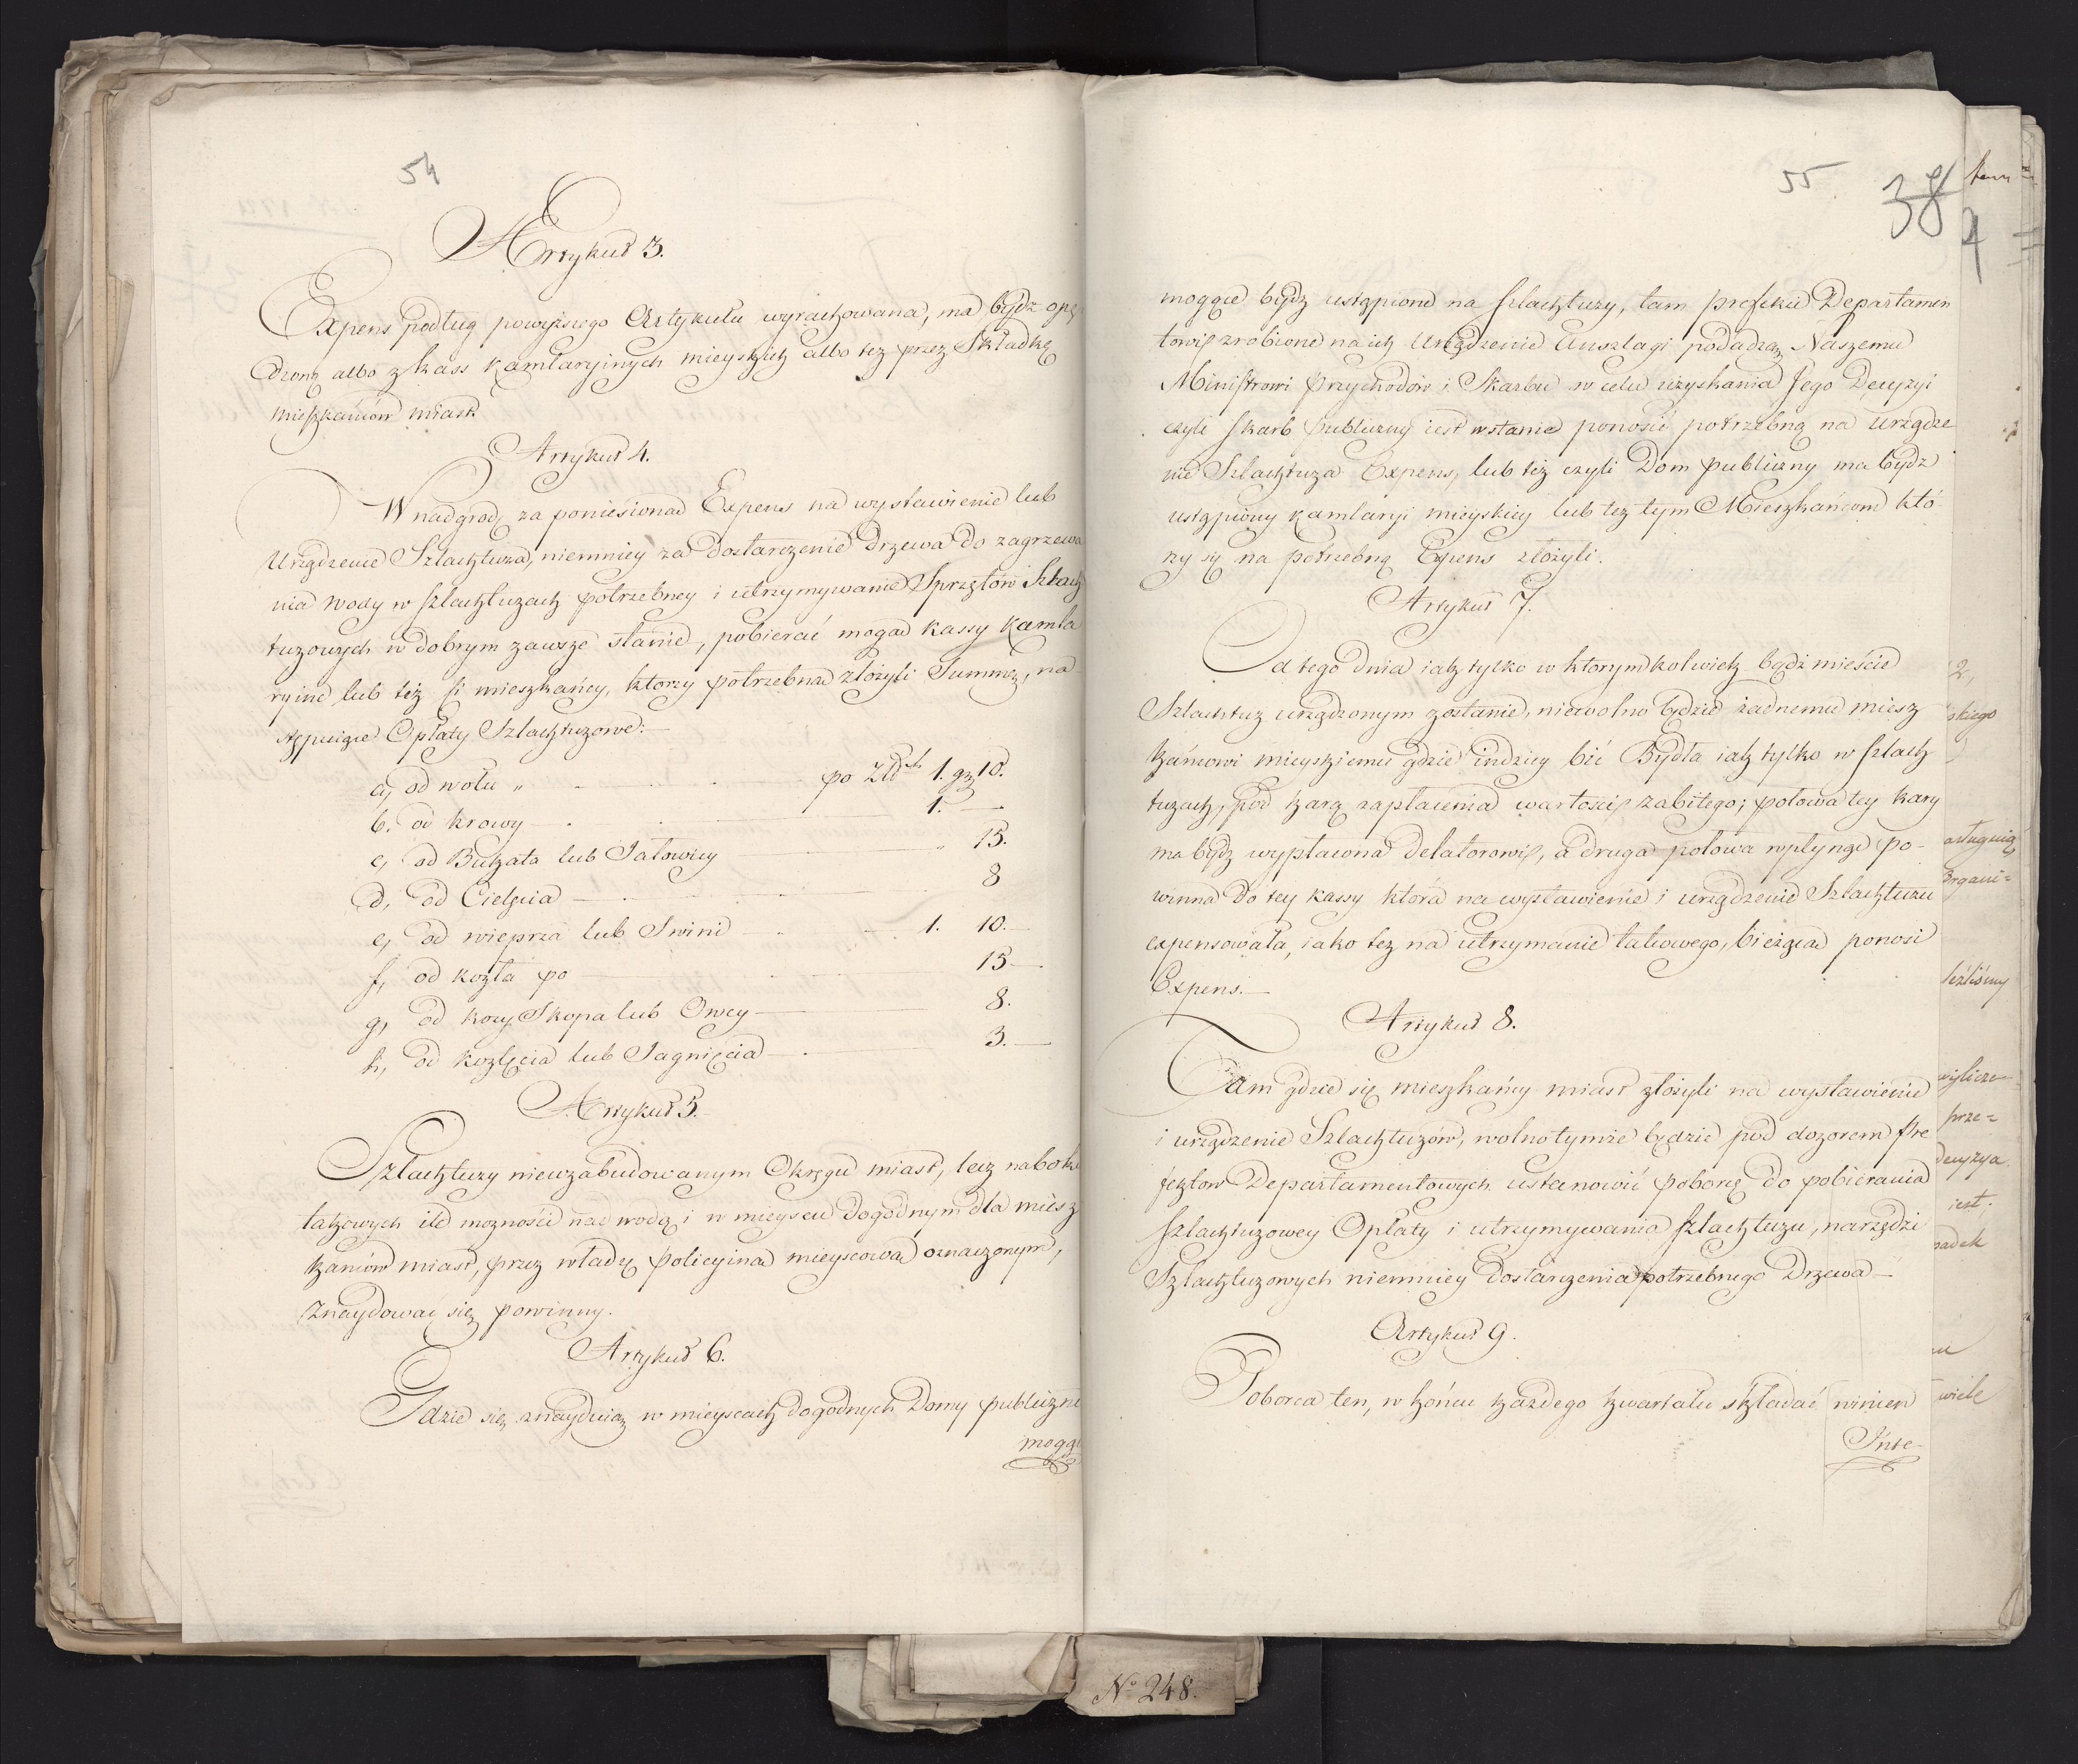 54
Artykuł 3.
Expens podług powyższego Artykułu wyrachowana, ma bydź opę
dzoną albo z kass kamlaryinych mieyskich albo też przez Składkę
mieszkańców miast
Artykuł 4.
W nadgrodę za poniesioną Expens na wystawienie lub
Urządzenie Szlachtuza, niemniey za dostarczenie drzewa do zagrzewa
nia wody w szlachtuzach potrzebney i utrzymywanie Sprzętów Szlach
tuzowych w dobrym zawsze stanie, pobierać mogą kassy kamla
ryine lub też ci mieszkańcy, którzy potrzebną złożyli Summę, na
stępuiące Opłaty Szlachtuzowe:
a, od wołu „ po Złtch 1. gr 10.
b. od krowy 1. —
c, od Buhata lub Jałowicy „ 15.
d, od Cielęcia 8
e, od wieprza lub Swini 1. 10.
f, od kozła po 15
g, od kozy Skopa lub Owcy 8.
h, od koźlęcia lub Jagnięcia 3.
Artykuł 5.
Szlachtuzy nie w zabudowanym Okręgu miast, lecz na bok
takowych ile możności nad wodą i w mieyscu dogodnym dla miesz
kańców miast, przez władzę policyiną mieyscową oznaczonym,
znaydować się powinny.
Artykuł 6.
Gdzie się znayduią w mieyscach dogodnych Domy publiczne
mogą
55
38
mogące bydź ustąpione na szlachtuzy, tam prefekci Departamen
towi zrobione na ich Urządzenie Anszlagi podadzą Naszemu
Ministrowi przychodów i Skarbu w celu uzyskania Jego Decyzyi
czyli skarb publiczny iest w stanie ponosić potrzebną na urządze
nie Szlachtuza Expens, lub też czyli Dom publiczny ma bydź
ustąpiony kamlaryi mieyskiey lub też tym Mieszkańcom któ
rzy się na potrzebną Expens złożyli.
Artykuł 7.
Od tego dnia iak tylko w którymkolwiek bądź mieście
Szlachtuz urządzonym zostanie, niewolno będzie żadnemu miesz
kańcowi mieyskiemu gdzie indziey bić Bydła iak tylko w szlach
tuzach, pod karą zapłacenia wartości zabitego; połowa tey kary
ma bydź wypłacona delatorowi, a druga połowa wpłynąć po-
winna do tey kassy która na wystawienie i urządzenie Szlachtuzu
expensowała, iako też na utrzymanie takowego, bieżącą ponosi
Expens.—
Artykuł 8.
Tam gdzie się mieszkańcy miast złożyli na wystawienie
i urządzenie Szlachtuzów, wolno tymże będzie pod dozorem Pre
fektów Departamentowych ustanowić poborcę do pobierania
szlachtuzowey Opłaty i utrzymywania szlachtuzu, narzędzi
Szlachtuzowych niemniey dostarczenia potrzebnego Drzewa—
Artykuł 9.
Poborca ten, w końcu każdego kwartału składać winien
Inte-
2,
skiego
Organi=
wylicze
prze=
Decyzya
iest.
padek
wiele
No 248.